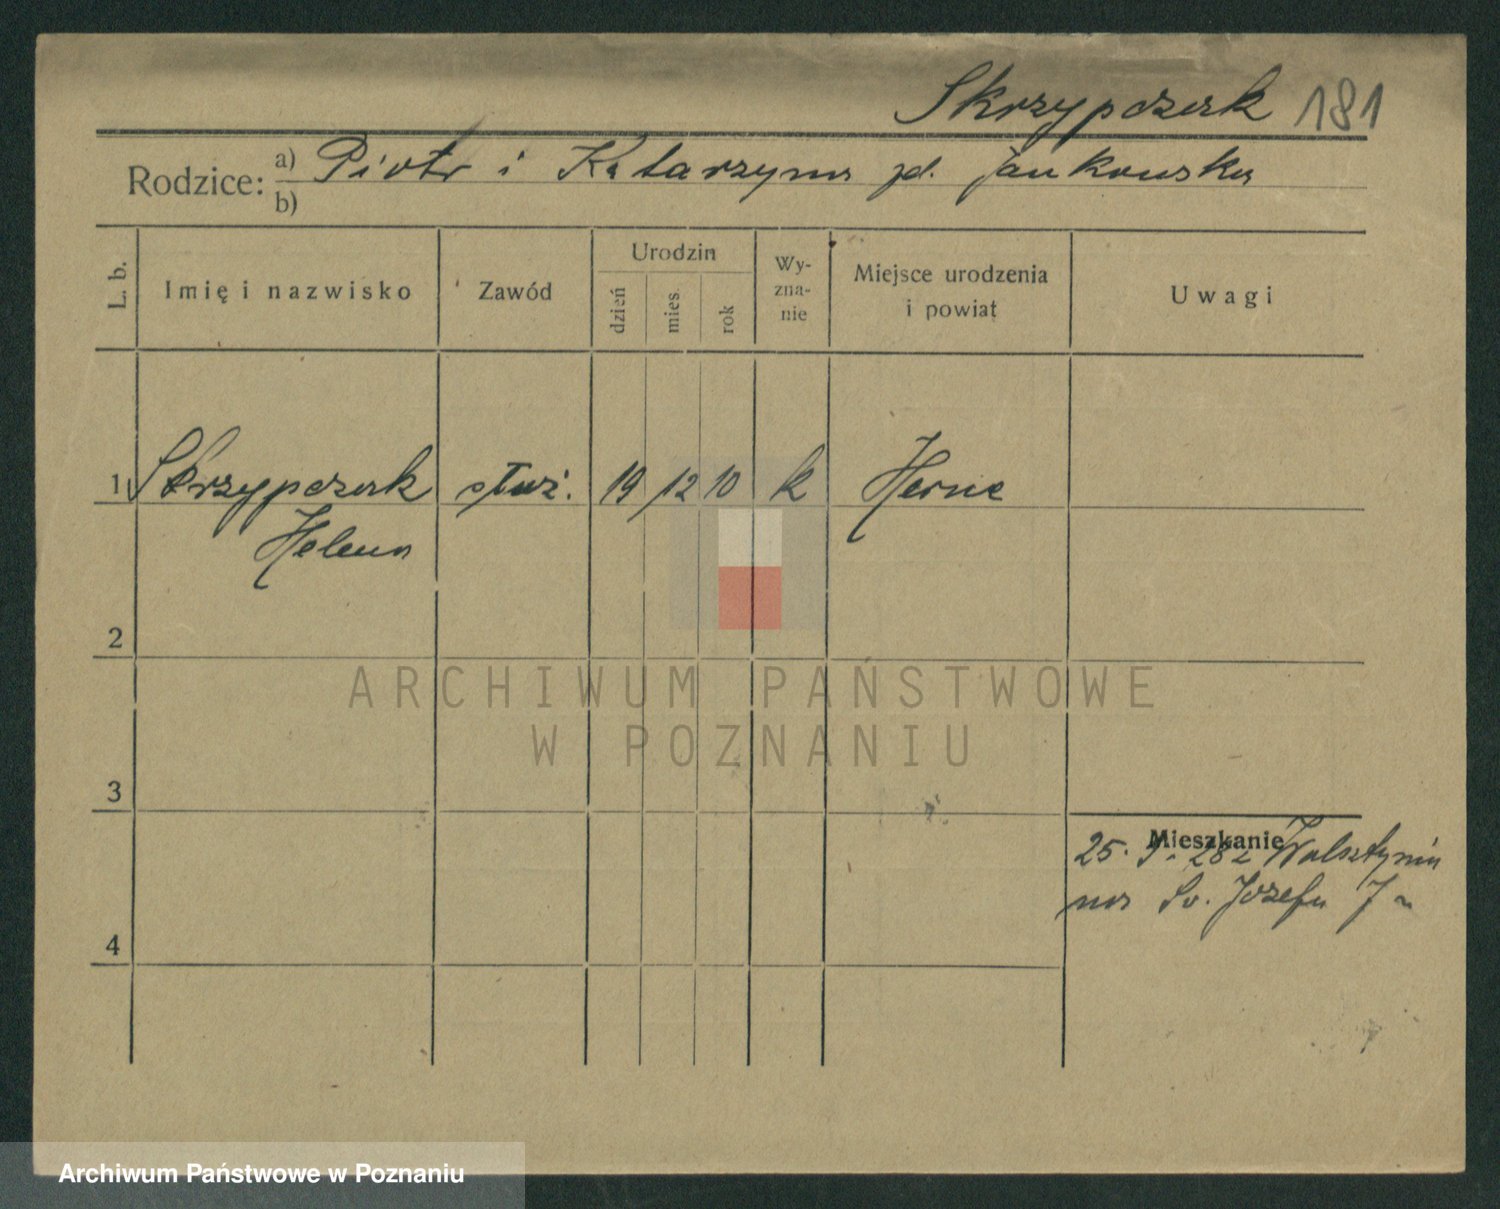 Skrzypczak 181
Rodzice: a) Piotr i Katarzyna zd. Jankowska
b)
L. b.
Imię i nazwisko
Zawód
Urodzin
dzień
mies.
rok
Wy-
zna-
nie
Miejsce urodzenia
i powiat
Uwagi
1 Skrzypczak służ. 19 12 10 k Herne
Helena
2
ARCHIWUM PAŃSTWOWE
W POZNANIU
3
Mieszkanie
25. 28 z Wolsztyna
na Św. Józefa 7
4
Archiwum Państwowe w Poznaniu